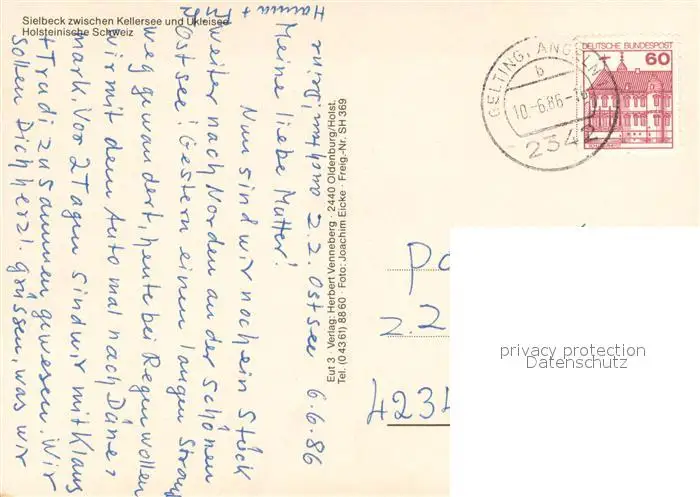 Sielbeck zwischen Kellersee und Ukleisee
Holsteinische Schweiz
z.Z. Ostsee 6.6.86
Meine liebe Mutter!
Nun sind wir noch ein Stück
weiter nach Norden an der schönen
Ostsee! Gestern einen langen Strand
weg gewandert, heute bei Regen wollen
wir mit dem Auto mal nach Däne,
mark. Vor 2 Tagen sind wir mit Klaus
+ Trudi zusammen gewesen. Wir
sollen Dich herzl. grüssen, was wir
Hanna +
Eut 3 Verlag: Herbert Venneberg · 2440 Oldenburg/Holst.
Tel. (0 43 61) 88 60 · Foto: Joachim Eicke · Freig.-Nr. SH 369
GELTING, ANGELN
b
10.-6.86-16
2342
DEUTSCHE BUNDESPOST
60
z.Z
4234
privacy protection
Datenschutz